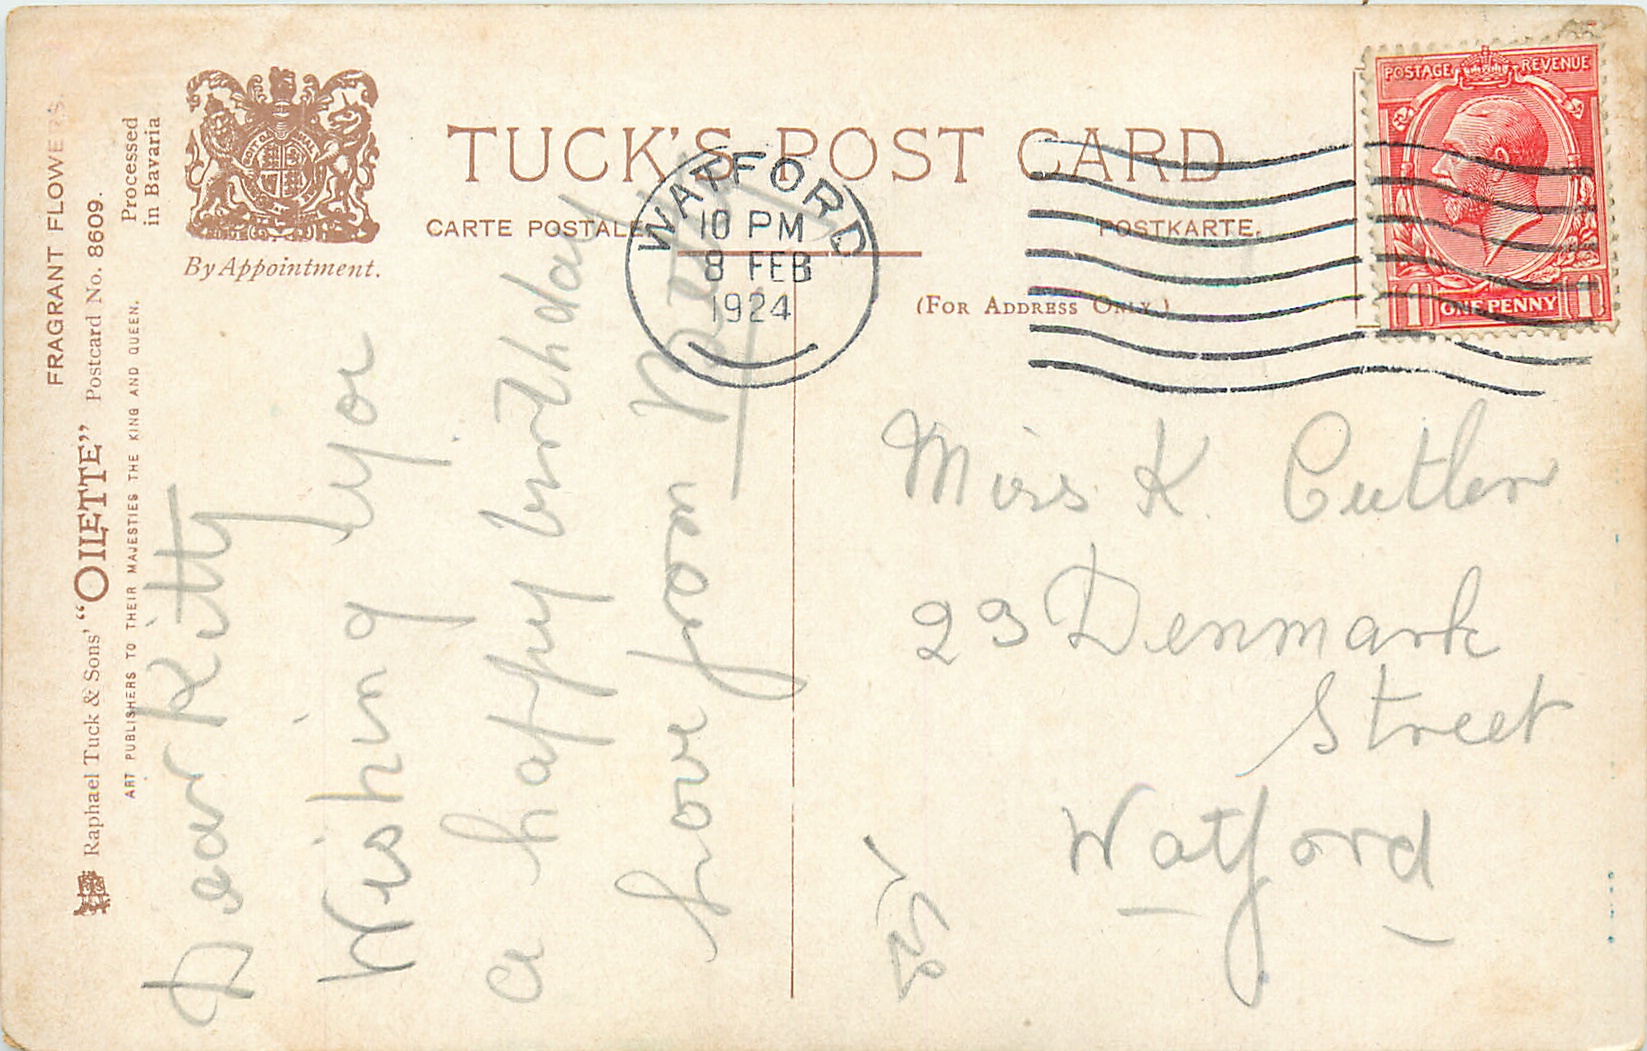 FRAGRANT FLOWERS.
Raphael Tuck & Sons' "OILETTE" Postcard No. 8609.
ART PUBLISHERS TO THEIR MAJESTIES THE KING AND QUEEN.
Processed
in Bavaria
By Appointment.
TUCK'S POST CARD
CARTE POSTALE
POSTKARTE.
(FOR ADDRESS ONLY.)
WATFORD
10 PM
8 FEB
1924
POSTAGE REVENUE
ONE PENNY
1 1
Dear Kitty
Wishing yor
a happy birthday
love from
Miss K. Cutler
23 Denmark
Street
Watford